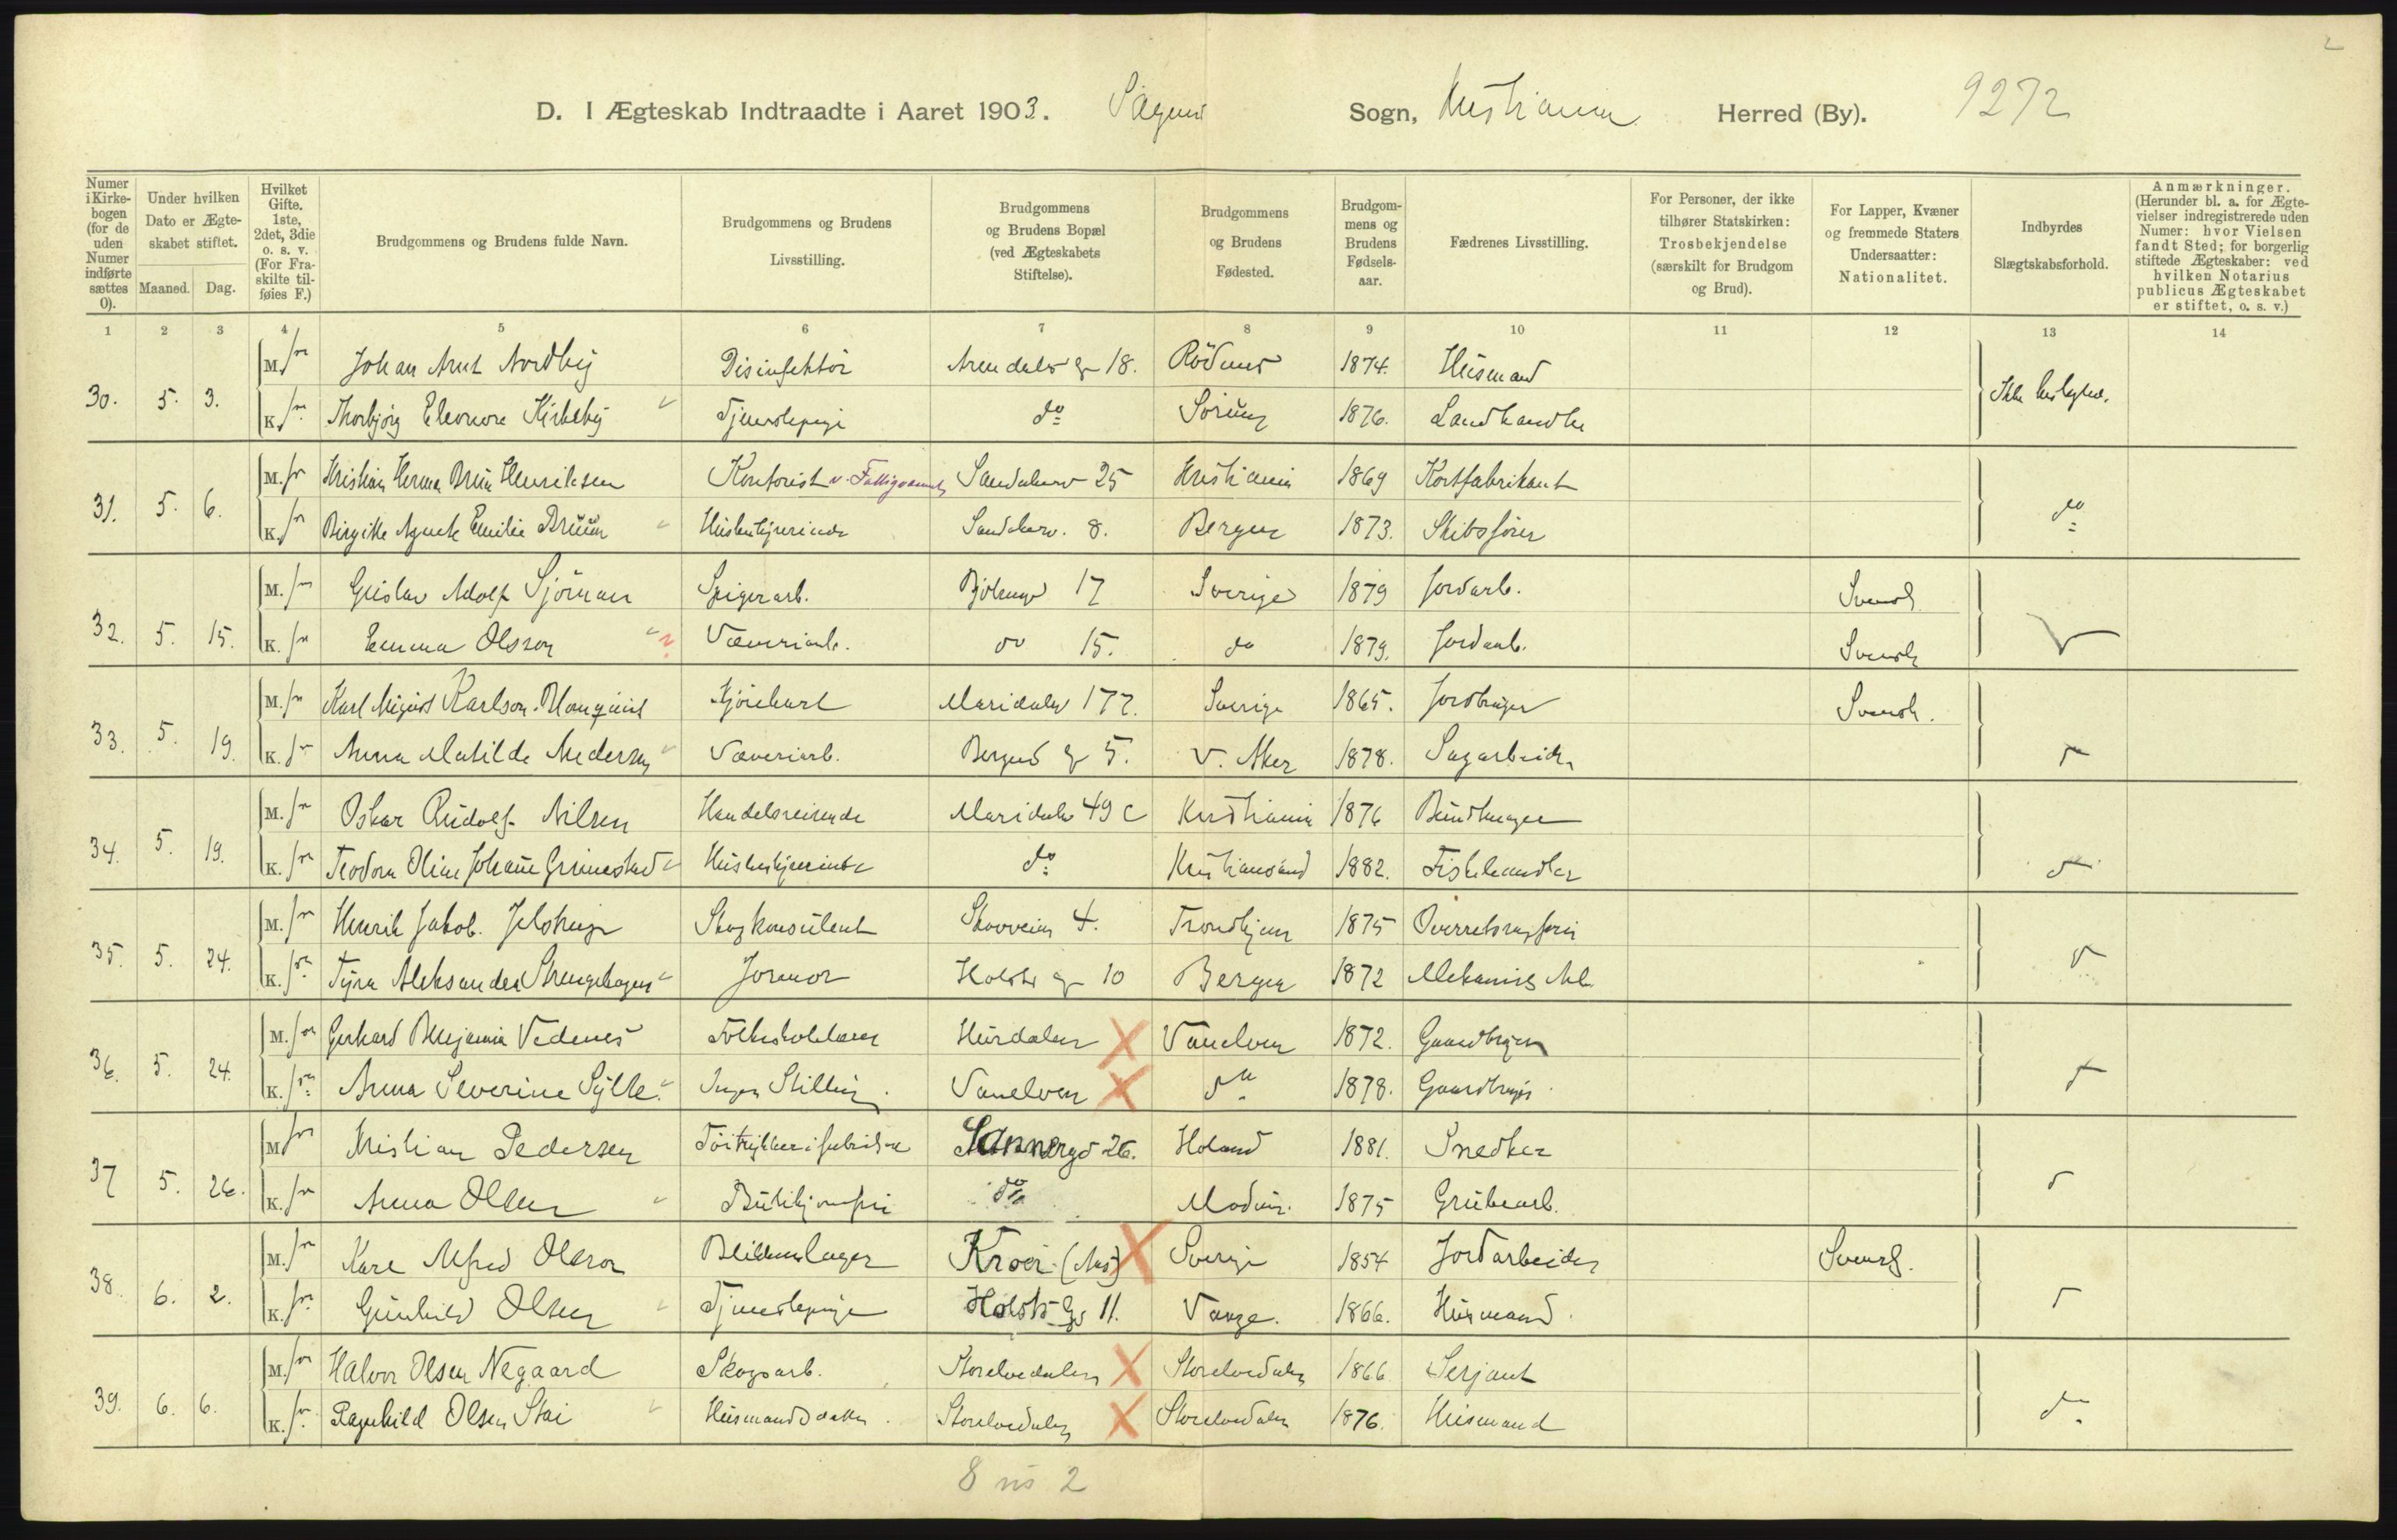 D. I Ægteskab Indtraadte i Aaret 1903. Sagene Sogn, Kristiania Herred (By). 9272
Numer i Kirkebogen (for de uden Numer indførte sættes 0).
Under hvilken Dato er Ægteskabet stiftet.
Maaned. Dag.
Hvilket Gifte. 1ste, 2det, 3die o. s. v. (For Fraskilte tilføies F.)
Brudgommens og Brudens fulde Navn.
Brudgommens og Brudens Livsstilling.
Brudgommens og Brudens Bopæl (ved Ægteskabets Stiftelse).
Brudgommens og Brudens Fødested.
Brudgommens og Brudens Fødselsaar.
Fædrenes Livsstilling.
For Personer, der ikke tilhører Statskirken: Trosbekjendelse (særskilt for Brudgom og Brud).
For Lapper, Kvæner og fremmede Staters Undersaatter: Nationalitet.
Indbyrdes Slægtskabsforhold.
Anmærkninger. (Herunder bl. a. for Ægtevielser indregistrerede uden Numer: hvor Vielsen fandt Sted; for borgerlig stiftede Ægteskaber: ved hvilken Notarius publicus Ægteskabet er stiftet, o. s. v.)
1 2 3 4 5 6 7 8 9 10 11 12 13 14
M. Johan Arnt Nordby Disinfektør Arendals g 18. Rødenes 1874. Husmand
30. 5. 3. Ikke beslegtet.
K. Thorbjørg Eleonore Kirkeby Tjenestepige do Sørum 1876. Landhandler
M. Kristian Herman Bruu Henriksen Kontorist v. Fattigvæsenet Sandakerv 25 Kristiania 1869 Kortfabrikant
31. 5. 6. do
K. Birgitte Agnete Emilie Bruun Husbestyrerinde Sandakerv. 8. Bergen 1873. Skibsfører
M. Gustav Adolf Sjöman Spigerarb. 17 Sverige 1879 Jordarb. Svensk
32. 5. 15.
K. Emma Olsson Væveriarb. do 15. do 1879. Jordarb. Svensk
M. Karl August Karlson Blomquist Kjørekarl Maridalsv 177. Sverige 1865. Jordbruger Svensk.
33. 5. 19.
K. Anna Matilde Andersen Væveriarb. Bergens g 5. V. Aker 1878. Sagarbeider
M. Oskar Rudolf Nilsen Handelsreisende Maridalsv 49 c Kristiania 1876 Buntmager
34. 5. 19.
K. Teodora Oline Johanne Grimestad Husbestyrerinde do Kristiansand 1882. Fiskehandler
M. Henrik Jakob Jelstrup Skogkonsulent Skovveien 4. Trondhjem 1875 Overretssagfører
35. 5. 24.
K. Tyra Aleksandra Strengehagen Jormor Holsts g 10 Bergen 1872 Mekanisk Arb.
M. Gerhard Benjamin Vedenes Folkeskolelærer Hurdalen Vanelven 1872. Gaardbruger
36. 5. 24.
K. Anna Severine Sylte Ingen Stilling. Vanelven do 1878. Gaardbruger
M. Kristian Pedersen Tøitrykker i fabrikk Sannergd 26. Høland 1881. Snedker
37 5. 26.
K. Anna Olsen Butikjomfru do Modum. 1875 Grubearb.
M. Karl Alfred Olsson Blikkenslager Kroer (Aas) Sverige 1854 Jordarbeider Svensk.
38. 6. 2.
K. Gunhild Olsen Tjenestepige Holsts Gd 11. Vange. 1866. Husmand.
M. Halvor Olsen Negaard Skogsarb. Storelvedalen Storelvedalen 1866 Serjant
39. 6. 6. do
K. Ragnhild Olsen Stai Husmandsdatter. Storelvedalen Storelvedalen 1876. Husmand
8 2